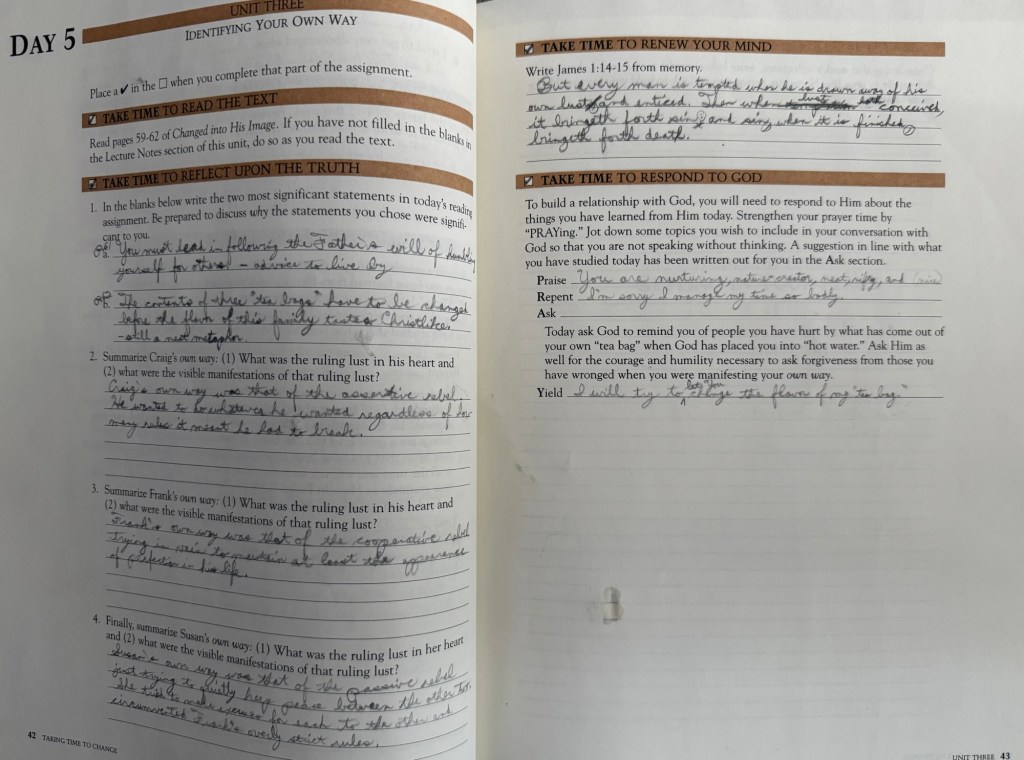 DAY 5
UNIT THREE
IDENTIFYING YOUR OWN WAY
Place a ✔ in the ☐ when you complete that part of the assignment.
☑ TAKE TIME TO READ THE TEXT
Read pages 59-62 of Changed into His Image. If you have not filled in the blanks in
the Lecture Notes section of this unit, do so as you read the text.
☑ TAKE TIME TO REFLECT UPON THE TRUTH
1. In the blanks below write the two most significant statements in today's reading
assignment. Be prepared to discuss why the statements you chose were signifi-
cant to you.
a. You must lead in following the Father's will of humbling
yourself for others - advice to live by
b. The contents of three "tea bags" have to be changed
before the flavor of this family tastes Christlike.
- still a neat metaphor.
2. Summarize Craig's own way: (1) What was the ruling lust in his heart and
(2) what were the visible manifestations of that ruling lust?
Craig's own way was that of the assertive rebel.
He wanted to do whatever he wanted regardless of how
many rules it meant he had to break.
3. Summarize Frank's own way: (1) What was the ruling lust in his heart and
(2) what were the visible manifestations of that ruling lust?
Frank's own way was that of the cooperative rebel
trying in vain to maintain at least the appearance
of perfection in his life.
4. Finally, summarize Susan's own way: (1) What was the ruling lust in her heart
and (2) what were the visible manifestations of that ruling lust?
Susan's own way was that of the passive rebel
just trying to quietly keep peace between the other two.
She tried to make excuses for each to the other and
circumvented Frank's overly strict rules.
42 TAKING TIME TO CHANGE
☑ TAKE TIME TO RENEW YOUR MIND
Write James 1:14-15 from memory.
But every man is tempted when he is drawn away of his
own lust, and enticed. Then when lust hath conceived,
it bringeth forth sin; and sin, when it is finished,
bringeth forth death.
☑ TAKE TIME TO RESPOND TO GOD
To build a relationship with God, you will need to respond to Him about the
things you have learned from Him today. Strengthen your prayer time by
"PRAYing." Jot down some topics you wish to include in your conversation with
God so that you are not speaking without thinking. A suggestion in line with what
you have studied today has been written out for you in the Ask section.
Praise You are nurturing, nature-creator, neat, nifty, and nice
Repent I'm sorry I manage my time so badly.
Ask
Today ask God to remind you of people you have hurt by what has come out of
your own "tea bag" when God has placed you into "hot water." Ask Him as
well for the courage and humility necessary to ask forgiveness from those you
have wronged when you were manifesting your own way.
Yield I will try to let You change the flavor of my "tea bag"
UNIT THREE 43